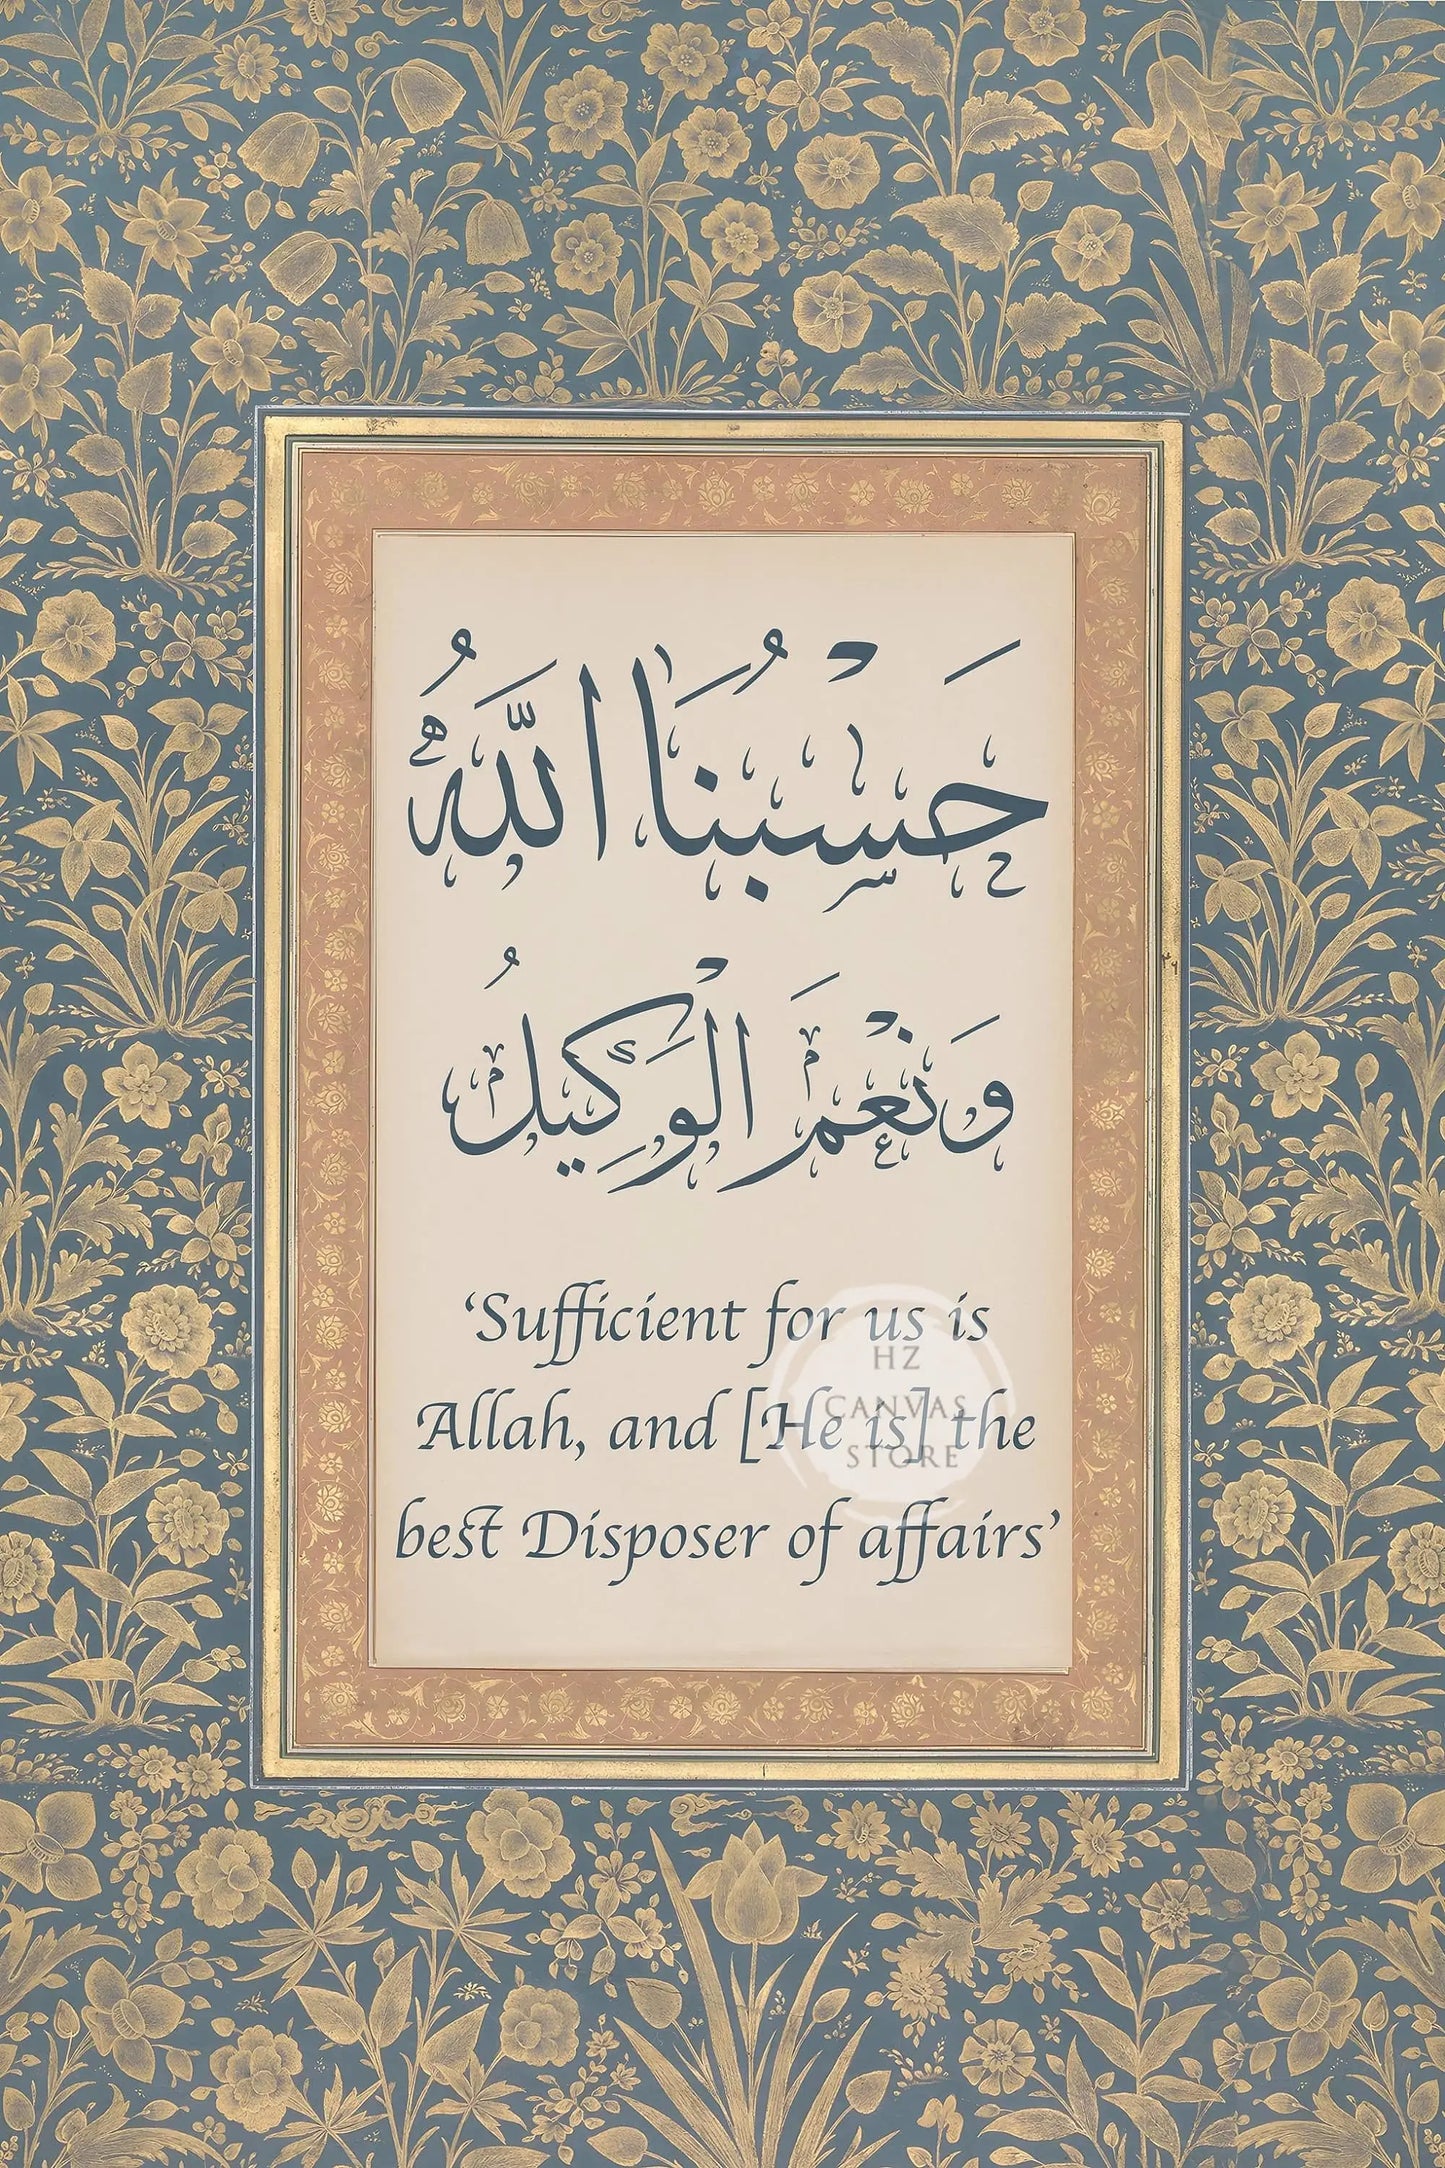 حَسْبُنَا اللَّهُ
وَنِعْمَ الْوَكِيلُ
‘Sufficient for us is
Allah, and [He is] the
best Disposer of affairs’
HZ
CANVAS
STORE
٣٩